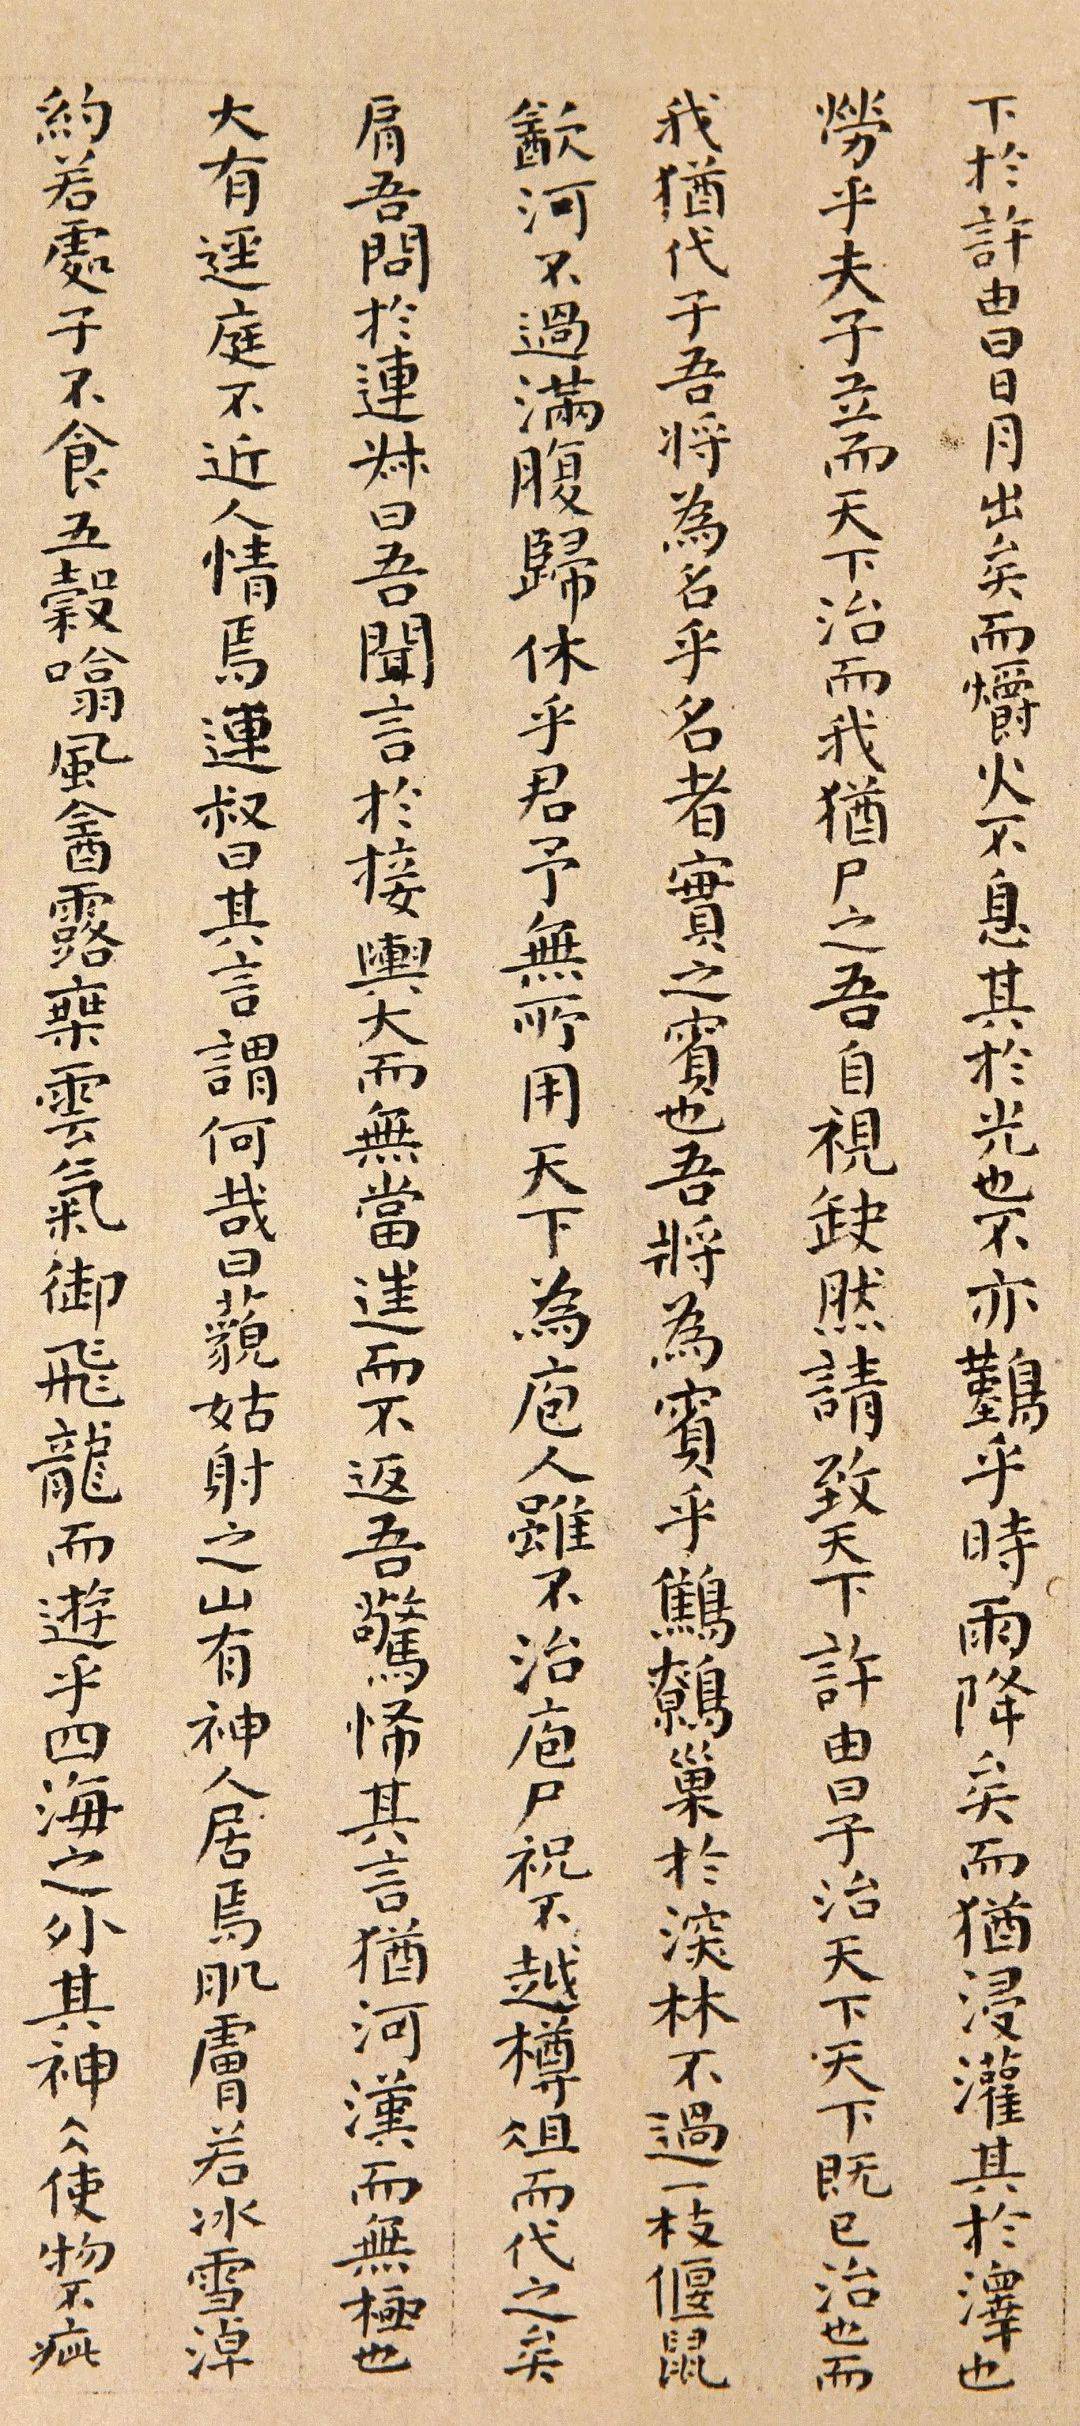 下於許由曰日月出矣而爝火不息其於光也不亦難乎時雨降矣而猶浸灌其於澤也
勞乎夫子立而天下治而我猶尸之吾自視缺然請致天下許由曰子治天下天下既已治也而
我猶代子吾將為名乎名者實之賓也吾將為賓乎鷦鷯巢於深林不過一枝偃鼠
飲河不過滿腹歸休乎君予無所用天下為庖人雖不治庖尸祝不越樽俎而代之矣
肩吾問於連叔曰吾聞言於接輿大而無當進而不返吾驚怖其言猶河漢而無極也
大有逕庭不近人情焉連叔曰其言謂何哉曰藐姑射之山有神人居焉肌膚若冰雪淖
約若處子不食五穀噏風飲露乘雲氣御飛龍而遊乎四海之外其神人使物不疵